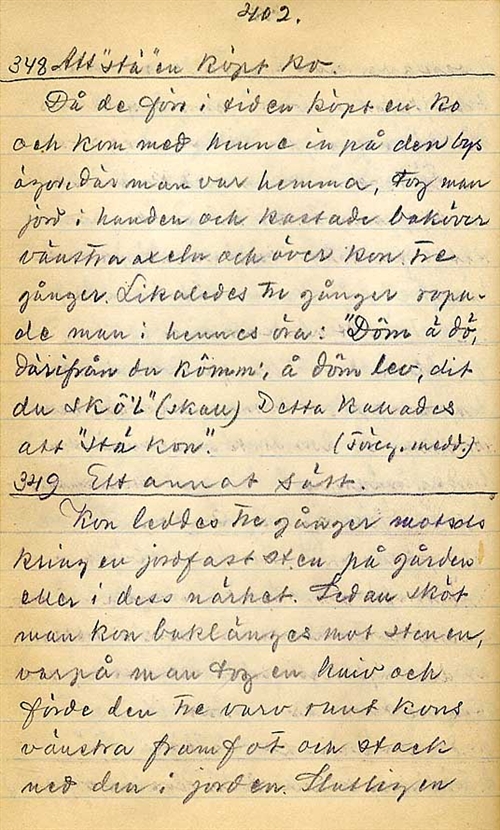 402.
348 Att "stä" en köpt ko.
Då de förr i tiden köpt en ko
och kom med henne in på den bys
ägor, där man var hemma, tog man
jord i handen och kastade baköver
vänstra axeln och över kon tre
gånger. Likaledes tre gånger ropa-
de man i hennes öra: "Döm ä dö,
därifrån du kömm', å döm lev, dit
du skö'l" (skall) Detta kallades
att "stä kon". (Föreg. medd.)
349 Ett annat sätt.
Kon leddes tre gånger motsols
kring en jordfast sten på gården
eller i dess närhet. Sedan sköt
man kon baklänges mot stenen,
varpå man tog en kniv och
förde den tre varv runt kons
vänstra framfot och stack
ned den i jorden. Slutligen